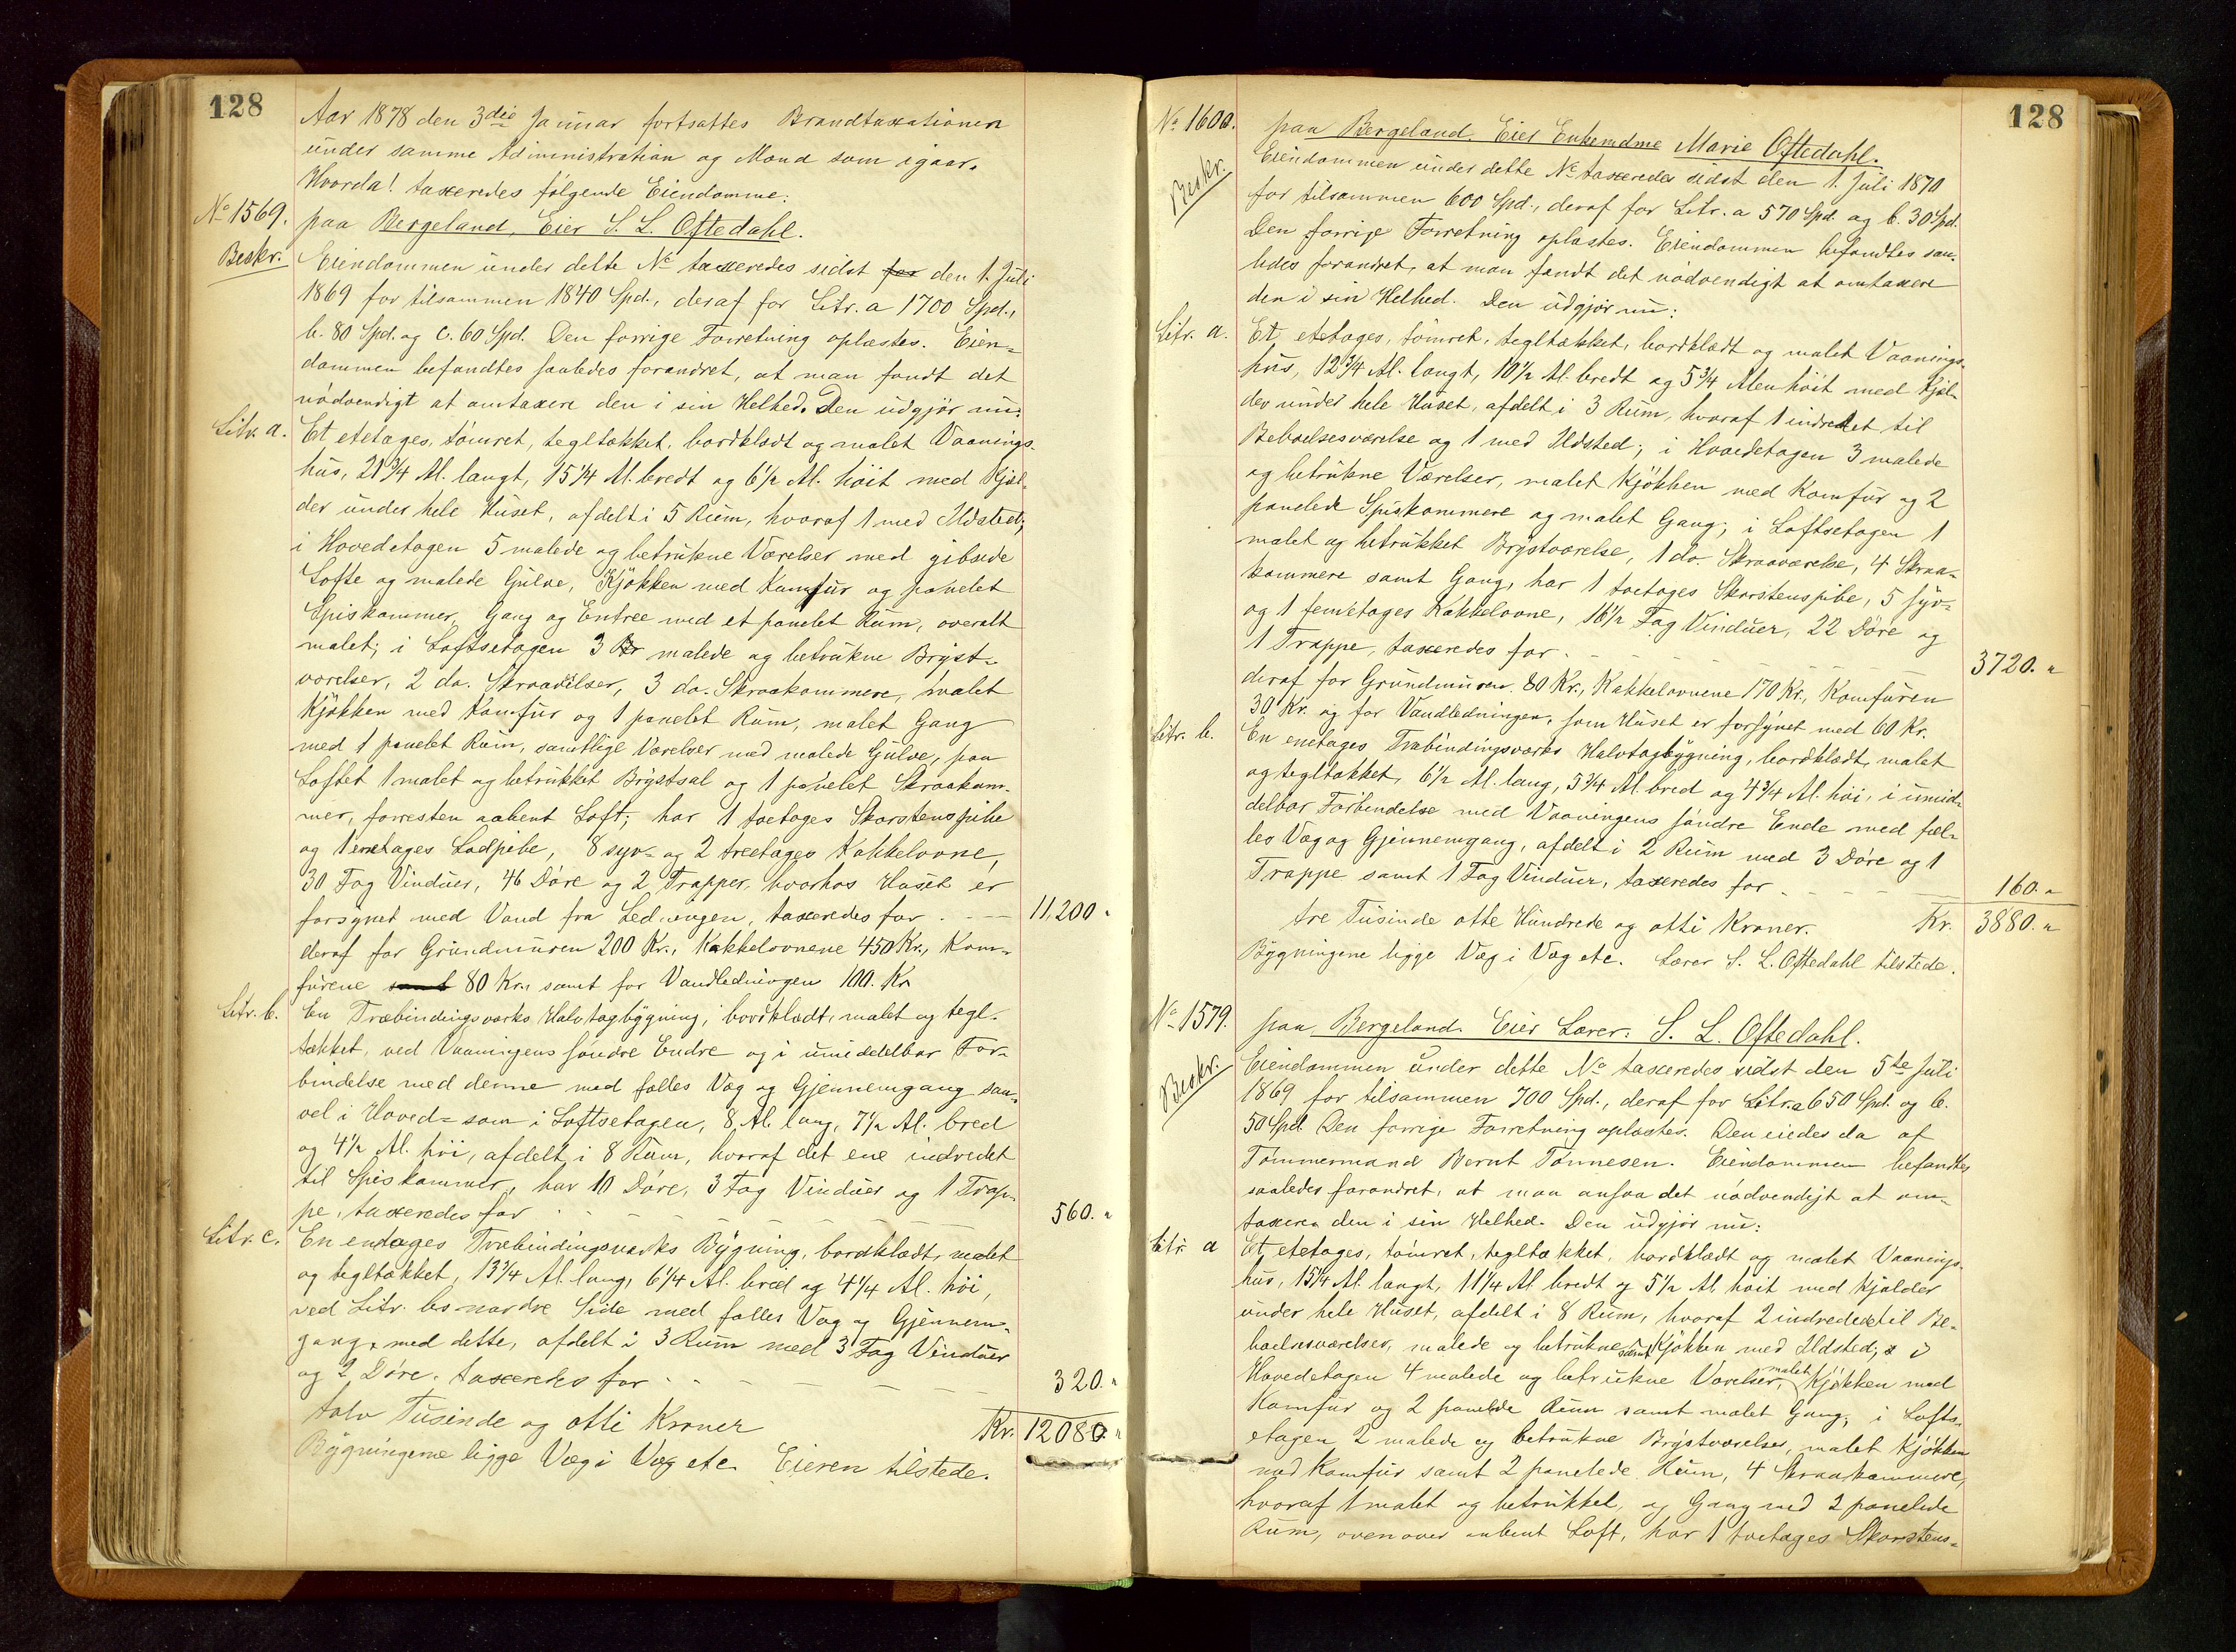 128
Aar 1878 den 3die Januar fortsattes Brandtaxationen
under samme Administration og Mænd som igaar.
Hvorda! taxeredes følgende Eiendomme:
No 1569. paa Bergeland, Eier S. L. Oftedahl.
Beskr. Eiendommen under dette No taxeredes sidst for den 1. Juli
1869 for tilsammen 1840 Spd., deraf for Litr. a 1700 Spd.,
b. 80 Spd. og c. 60 Spd. Den forrige Forretning oplæstes. Eien-
dommen befandtes saaledes forandret, at man fandt det
nødvendigt at omtaxere den i sin Helhed. Den udgjør nu:
Litr. a. Et etetages, tømret, tegltækket, bordklædt og malet Vaanings-
hus, 21 3/4 Al. langt, 15 1/4 Al. bredt og 6 1/2 Al. høit med Kjæl-
der under hele Huset, afdelt i 5 Rum, hvoraf 1 med Ildsted;
i Hovedetagen 5 malede og betrukne Værelser med gibsede
Lofte og malede Gulve, Kjøkken med Komfur og panelet
Spiskammer, Gang og Entree med et panelet Rum, overalt
malet; i Loftsetagen 3 malede og betrukne Bryst-
værelser, 2 do. Skraavælser, 3 do. Skraakammere, malet
Kjøkken med Komfur og 1 panelet Rum, malet Gang
med 1 panelet Rum, samtlige Værelser med malede Gulve, paa
Loftet 1 malet og betrukket Brystsal og 1 panelet Skraakam-
mer, forresten aabent Loft; har 1 toetages Skorstenspibe
og 1 enetages Lodpibe, 8 syv- og 2 treetages Kakkelovne,
30 Fag Vinduer, 46 Døre og 2 Trapper, hvorhos Huset er
forsynet med Vand fra Ledningen, taxeredes for 11,200 "
deraf for Grundmuren 200 Kr., Kakkelovnene 450 Kr., Kom-
furene samt 80 Kr., samt for Vandledningen 100. Kr
Litr. b. En Træbindingsværks Halvtagbygning, bordklædt, malet og tegl-
tækket, ved Vaaningens søndre Endre og i umiddelbar For-
bindelse med denne med fælles Væg og Gjennemgang saa-
vel i Hoved- som i Loftsetagen, 8 Al. lang, 7 1/2 Al. bred
og 4 1/2 Al. høi, afdelt i 8 Rum, hvoraf det ene indredet
til Spiskammer, har 10 Døre, 3 Fag Vinduer og 1 Trap-
pe, taxeredes for 560. "
Litr. c. En endages Træbindingsværks Bygning, bordklædt, malet
og tegltækket, 13 3/4 Al. lang, 6 1/4 Al. bred og 4 1/4 Al. høi,
ved Litr. bs nordre Side med fælles Væg og Gjennem-
gang med dette, afdelt i 3 Rum med 3 Fag Vinduer
og 2 Døre. taxeredes for 320. "
tolv Tusinde og otti Kroner Kr. 12080. "
Bygningerne ligge Væg i Væg etc. Eieren tilstede.
128
No 1600. paa Bergeland. Eier Enkemdme Marie Oftedahl.
Beskr. Eiendommen under dette No taxeredes sidst den 1. Juli 1870
for tilsammen 600 Spd., deraf for Litr. a 570 Spd. og b. 30 Spd.
Den forrige Forretning oplæstes. Eiendommen befandtes saa-
ledes forandret, at man fandt det nødvendigt at omtaxere
den i sin Helhed. Den udgjør nu:
Litr. a. Et etetages, tømret, tegltækket, bordklædt og malet Vaanings-
hus, 12 3/4 Al. langt, 10 1/2 Al. bredt og 5 3/4 Alen høit med Kjæl-
der under hele Huset, afdelt i 3 Rum, hvoraf 1 indredet til
Beboelsesværelse og 1 med Ildsted; i Hovedetagen 3 malede
og betrukne Værelser, malet Kjøkken med Komfur og 2
panelede Spiskammere og malet Gang; i Loftsetagen 1
malet og betrukket Brystværelse, 1 do. Skraaværelse, 4 Skraa-
kammere samt Gang, har 1 toetages Skorstenspibe, 5 syv-
og 1 femetages Kakkelovne, 16 1/2 Fag Vinduer, 22 Døre og
1 Trappe, taxeredes for 3720. "
deraf for Grundmuren 80 Kr., Kakkelovnene 170 Kr., Komfuren
30 Kr. og for Vandledningen, som Huset er forsynet med 60 Kr.
Litr. b. En enetages Træbindingsværks Halvtagbygning, bordklædt, malet
og tegltækket, 6 1/2 Al. lang, 5 3/4 Al. bred og 4 3/4 Al. høi, i umid-
delbar Forbindelse med Vaaningens søndre Ende med fæl-
les Væg og Gjennemgang, afdelt i 2 Rum med 3 Døre og 1
Trappe samt 1 Fag Vinduer, taxeredes for 160. "
tre Tusinde otte Hundrede og otti Kroner. Kr. 3880. "
Bygningerne ligge Væg i Væg etc. Lærer S. L. Oftedahl tilstede.
No 1579. paa Bergeland. Eier Lærer. S. L. Oftedahl.
Beskr. Eiendommen under dette No taxeredes sidst den 5te Juli
1869 for tilsammen 700 Spd., deraf for Litr. a 650 Spd. og b.
50 Spd. Den forrige Forretning oplæstes. Den eiedes da af
Tømmermand Bernt Tønnesen. Eiendommen befandtes
saaledes forandret, at man ansaa det nødvendigt at om-
taxere den i sin Helhed. Den udgjør nu:
Litr. a Et etetages, tømret, tegltækket, bordklædt og malet Vaanings-
hus, 15 1/4 Al. langt, 11 1/4 Al bredt og 5 1/2 Al. høit med Kjælder
under hele Huset, afdelt i 8 Rum, hvoraf 2 indredede til Be-
boelsesværelser, malede og betrukne samt Kjøkken med Ildsted; i
Hovedetagen 4 malede og betrukne Værelser, malet Kjøkken med
Komfur og 2 panelede Rum samt malet Gang; i Lofts-
etagen 2 malede og betrukne Brystværelser, malet Kjøkken
med Komfur samt 2 panelede Rum, 4 Skraakammere,
hvoraf 1 malet og betrukket, og Gang med 2 panelede
Rum, ovenover aabent Loft, har 1 toetages Skorstens-